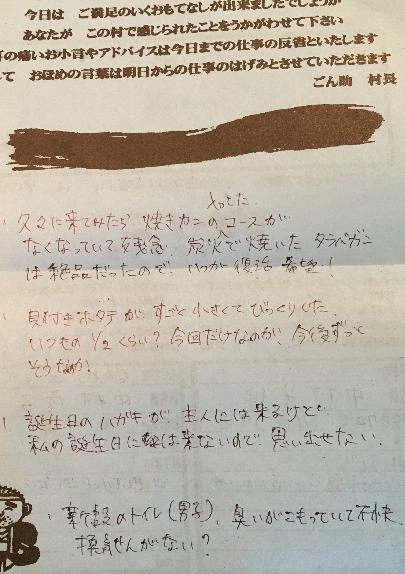 今日は ご満足のいくおもてなしが出来ましたでしょうか
あなたが この村で感じられたことをうかがわせて下さい
の痛いお小言やアドバイスは今日までの仕事の反省といたします
て おほめの言葉は明日からの仕事のはげみとさせていただきます
ごん助 村長
久々に来てみたら 焼きカニのコースが
なくなっていて残念。炭火で焼いた タラバガニ
は絶品だったので、いつか復活 希望!
貝付きホタテが、すごく小さくてびっくりした。
いつもの 1/2くらい? 今回だけなのか、今後ずっと
そうなのか?
誕生日のハガキが、主人には来るけど
私の誕生日には来ないので、思い出せない。
新館のトイレ(男子)、臭いがこもっていて不快。
換気せんがない?